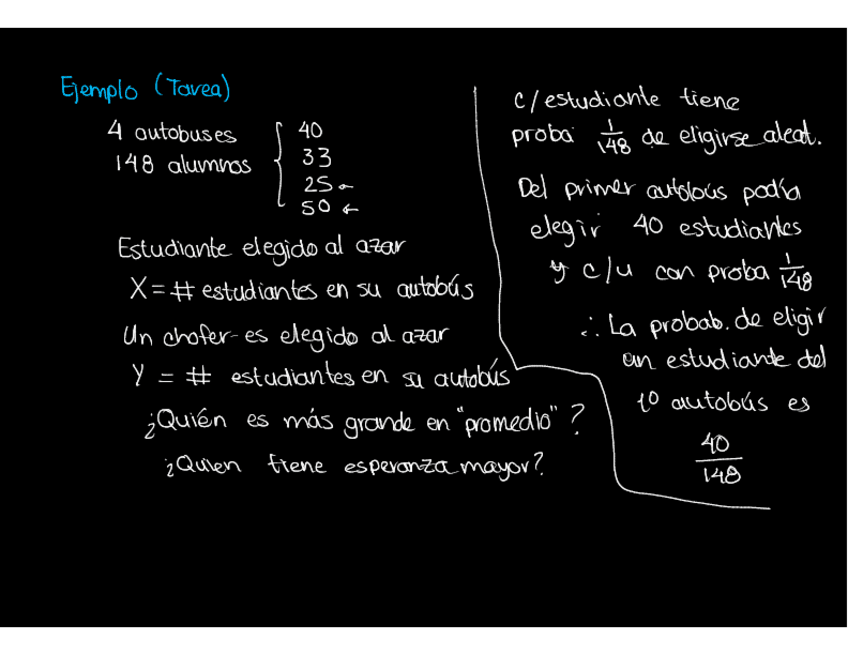 Ejemplo (Tarea)
4 autobuses { 40
148 alumnos 33
25 ←
50 ←
Estudiante elegido al azar
X = # estudiantes en su autobús
Un chofer es elegido al azar
Y = # estudiantes en su autobús
¿Quién es más grande en "promedio"?
¿Quien tiene esperanza mayor?
c/estudiante tiene
proba 1/148 de eligirse aleat.
Del primer autobús podía
elegir 40 estudiantes
y c/u con proba 1/148
∴ La probab. de eligir
un estudiante del
1º autobús es
40
148